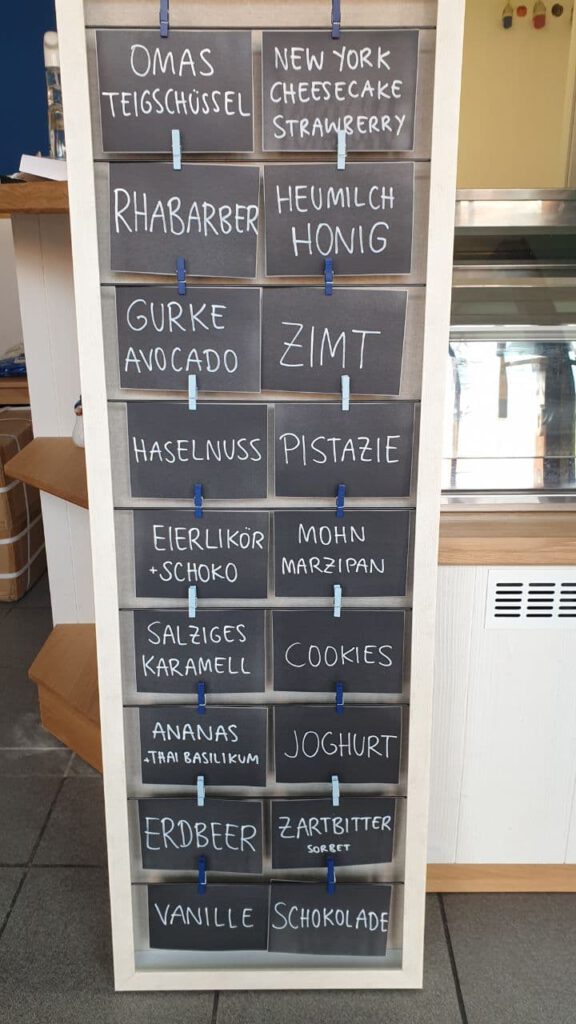 OMAS
TEIGSCHÜSSEL
NEW YORK
CHEESECAKE
STRAWBERRY
RHABARBER
HEUMILCH
HONIG
GURKE
AVOCADO
ZIMT
HASELNUSS
PISTAZIE
EIERLIKÖR
+SCHOKO
MOHN
MARZIPAN
SALZIGES
KARAMELL
COOKIES
ANANAS
+THAI BASILIKUM
JOGHURT
ERDBEER
ZARTBITTER
SORBET
VANILLE
SCHOKOLADE